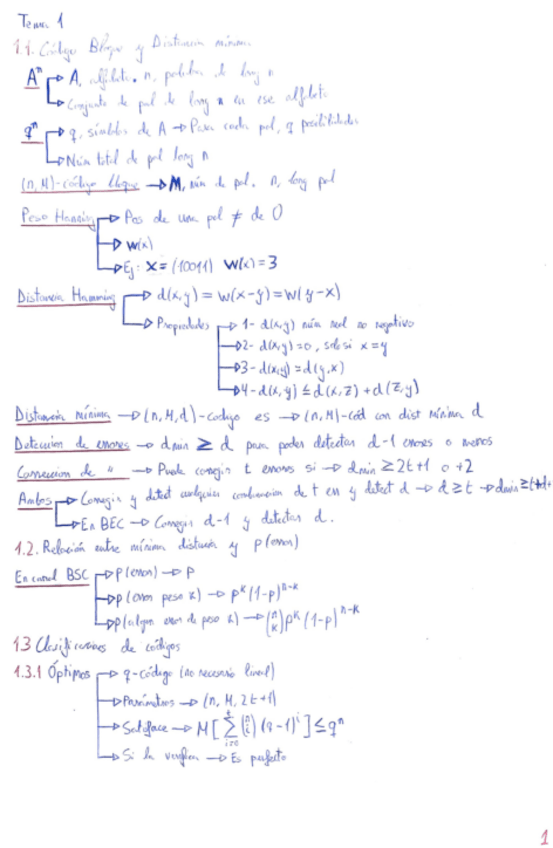 Tema 1
1.1. Código Bloque y Distancia mínima
Aⁿ → A, alfabeto. n, palabra de long n
→ Conjunto de pal de long n en ese alfabeto
qⁿ → q, símbolos de A → Para cada pal, q posibilidades
→ Núm total de pal long n
(n, M)-código bloque → M, núm de pal. n, long pal
Peso Hamming → Pos de una pal ≠ de 0
→ w(x)
→ Ej: x = (10011) w(x) = 3
Distancia Hamming → d(x,y) = w(x-y) = w(y-x)
→ Propiedades → 1- d(x,y) núm real no negativo
→ 2- d(x,y) = 0, solo si x = y
→ 3- d(x,y) = d(y,x)
→ 4- d(x,y) ≤ d(x,z) + d(z,y)
Distancia mínima → (n, M, d)-codigo es → (n, M)-cód con dist mínima d
Deteccion de errores → dmin ≥ d para poder detectar d-1 errores o menos
Correccion de " → Puede corregir t errores si → dmin ≥ 2t+1 o +2
Ambos → Corregir y detect cualquier combinacion de t err y detect d → d ≥ t → dmin ≥ t+d+
→ En BEC → Corregir d-1 y detectar d.
1.2. Relación entre mínima distancia y p(error)
En canal BSC → p(error) → p
→ p(error peso k) → pᵏ(1-p)ⁿ⁻ᵏ
→ p(algun error de peso k) → (n k) pᵏ (1-p)ⁿ⁻ᵏ
1.3 Clasificaciones de códigos
1.3.1 Óptimos → q-código (no necesario lineal)
→ Parámetros → (n, M, 2t+1)
→ Satisface → M[∑ᵢ₌₀ᵗ (n i) (q-1)ⁱ] ≤ qⁿ
→ Si la verifica → Es perfecto
1